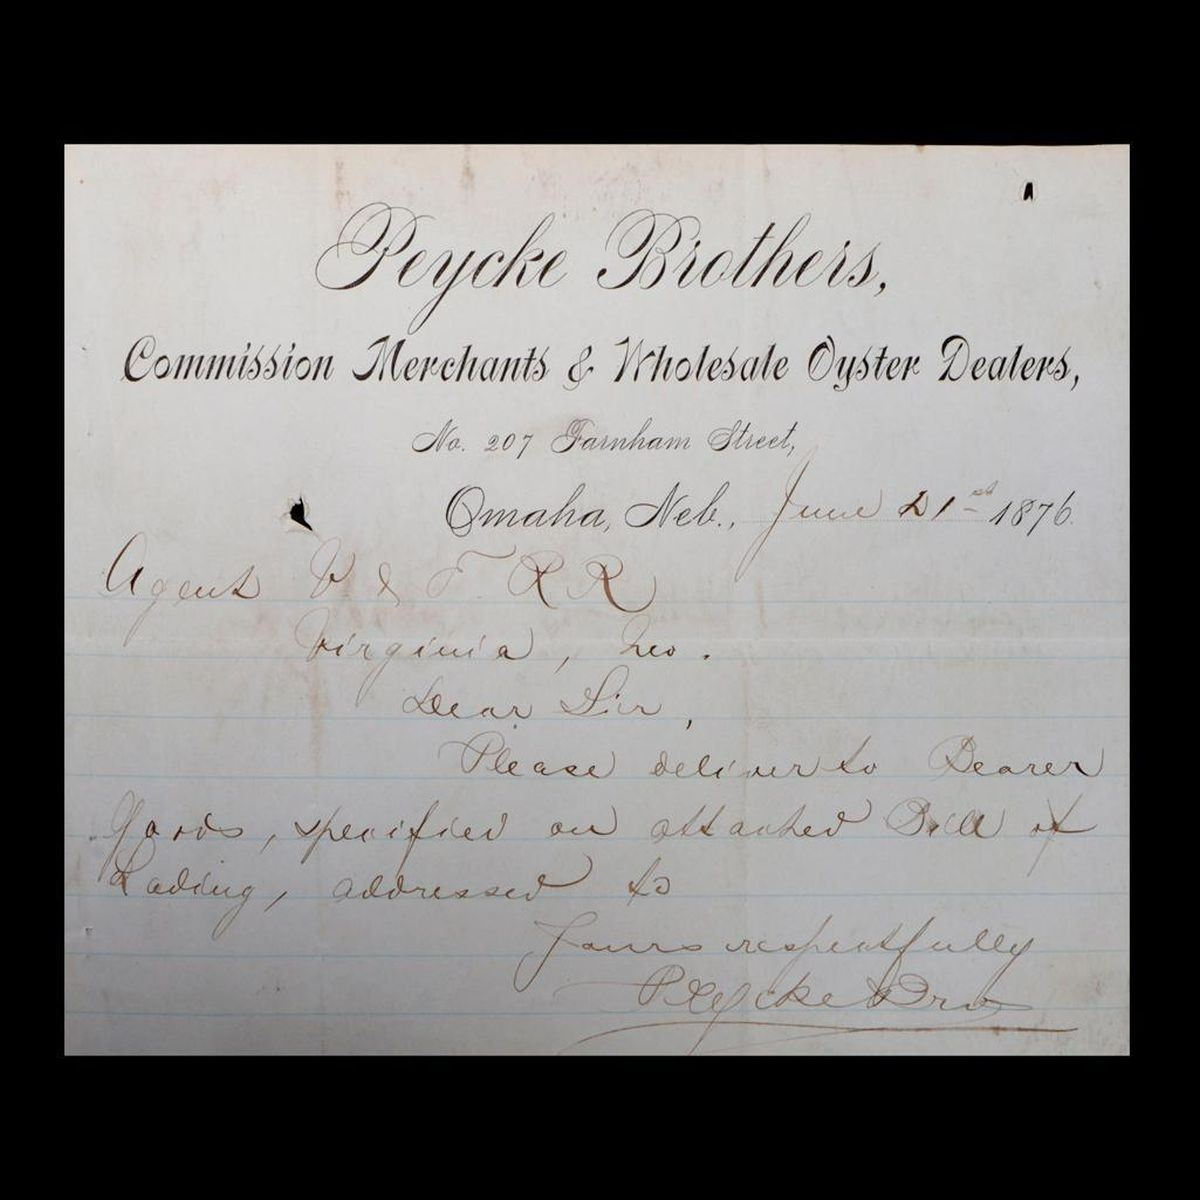 Peycke Brothers,
Commission Merchants & Wholesale Oyster Dealers,
No. 207 Farnham Street,
Omaha, Neb., June 21st 1876.
Agent V & T. R R
Virginia, Nev.
Dear Sir,
Please deliver to Bearer
Goods, specified on attached Bill of
Lading, addressed to
Yours respectfully
Peycke Bros